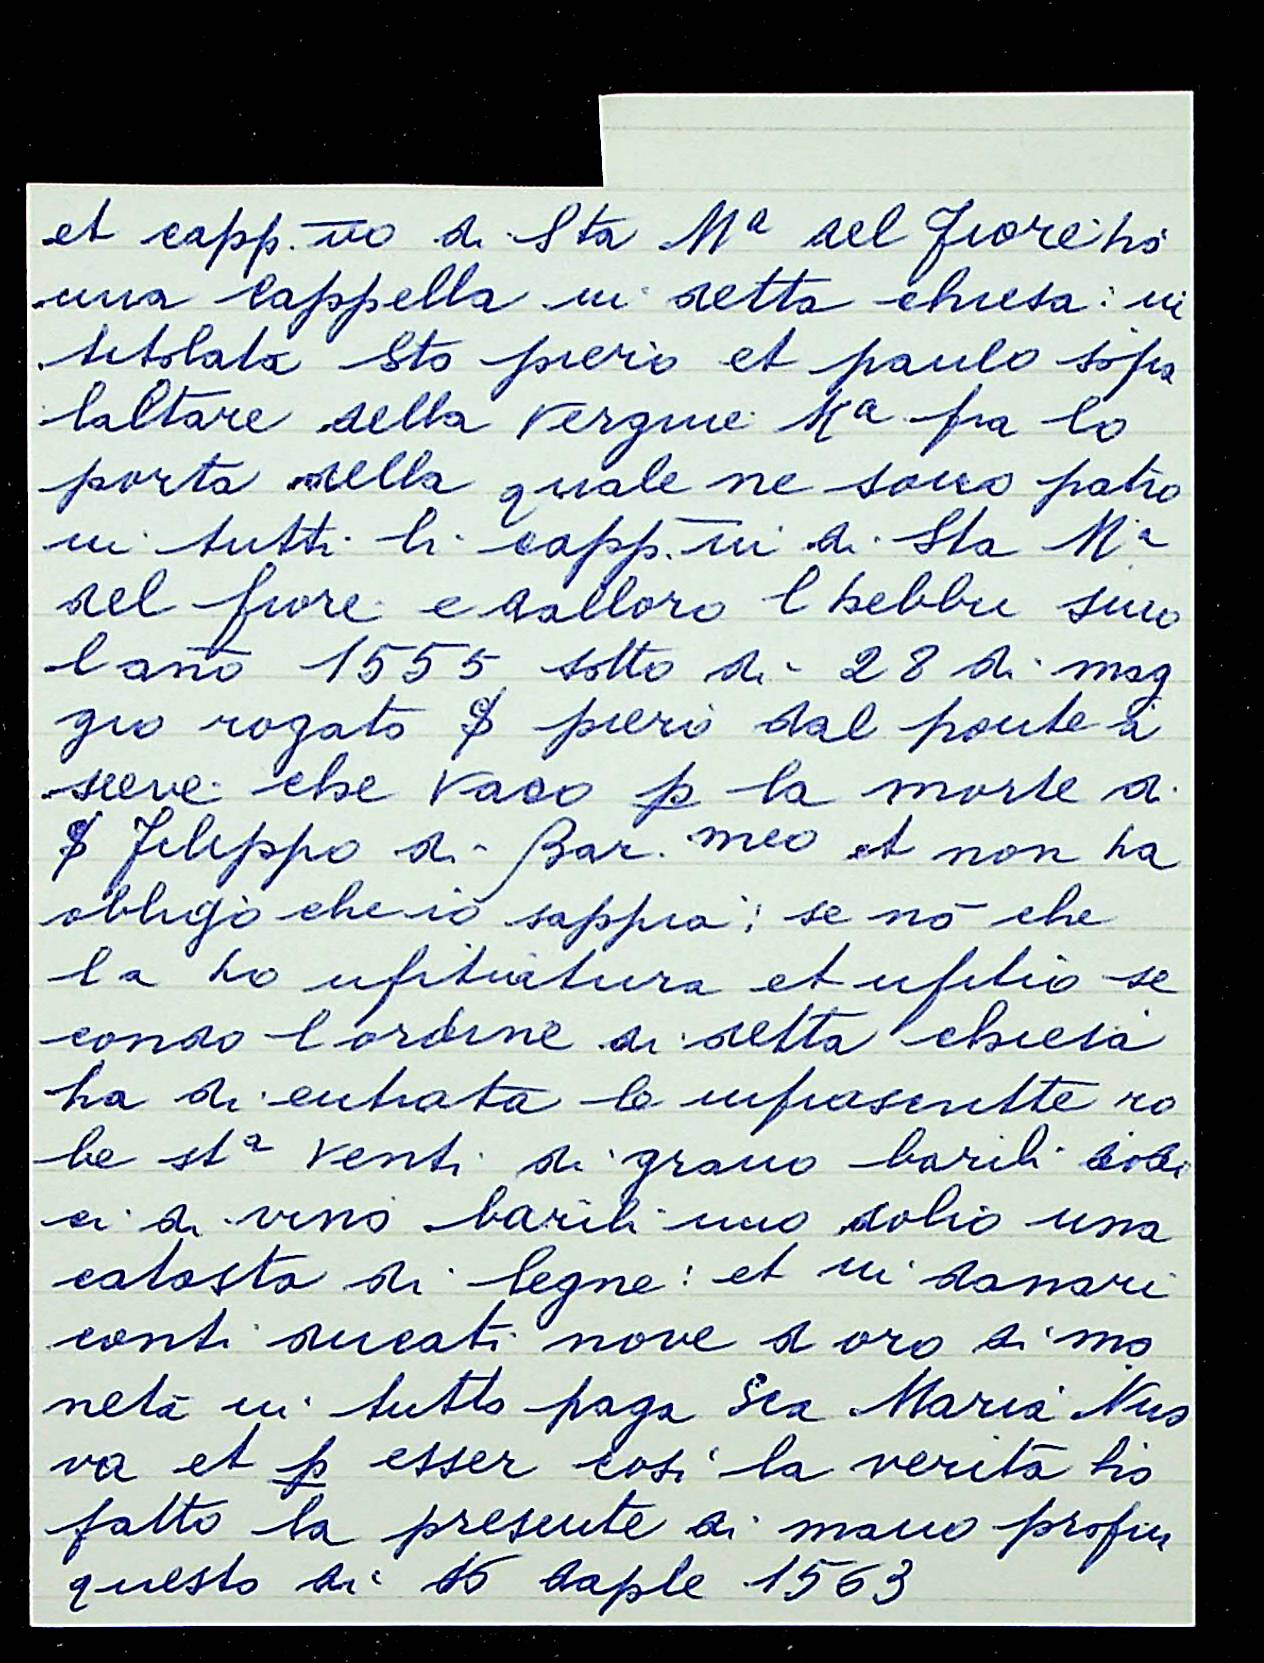 et capp.no di Sta Mª del Fiore ho
una Cappella in detta chiesa: in
titolata Sto piero et paulo sopra
laltare della Vergine Mª fra lo
porta della quale ne sono patro
ni tutti li capp.ni di Sta Mª
del fiore e dalloro l hebbi sino
l anō 1555 sotto di 28 di mag
gio rogato $ piero dal ponte a
sieve che vaco p la morte di
$ Filippo di Bar.meo et non ha
obbligo che io sappia; se nō che
la ho ufitiatura et ufitio se
condo l ordine di detta chiesa
ha di entrata le infrascritte ro
be stª venti di grano barili dodi
ci di vino barili uno dolio una
catasta di legne: et in danari
conti ducati nove d oro di mo
neta in tutto paga Sca Maria Nuo
va et p esser cosi la verità ho
fatto la presente di mano propia
questo di 15 daple 1563